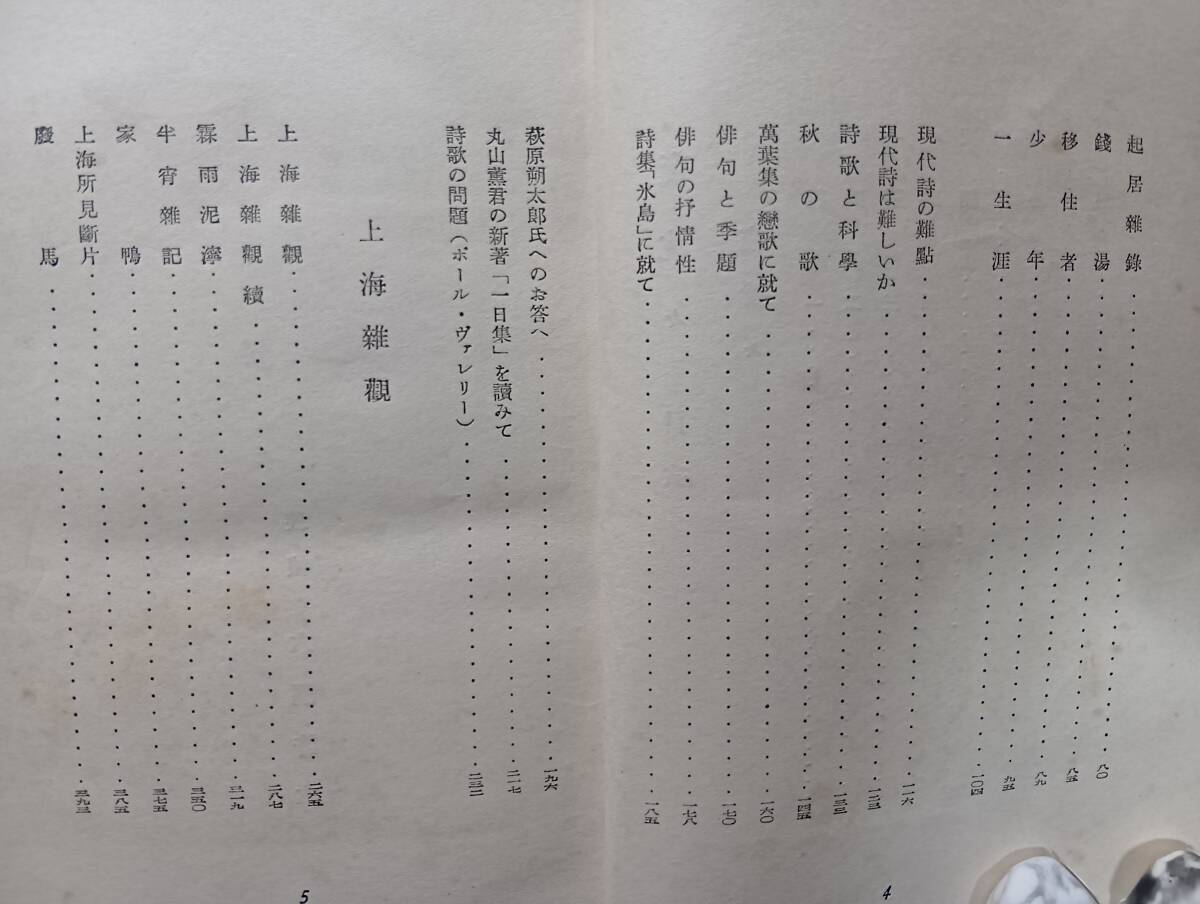 起居雜錄 八〇
錢湯 八五
移住者 八九
少年 九五
一生涯 一〇四
現代詩の難點 一一六
現代詩は難しいか 一二三
詩歌と科學 一三三
秋の歌 一四五
萬葉集の戀歌に就て 一六〇
俳句と季題 一七〇
俳句の抒情性 一七八
詩集「氷島」に就て 一八五
4
萩原朔太郎氏へのお答へ 一九六
丸山薰君の新著「一日集」を讀みて 二一七
詩歌の問題(ポール・ヴァレリー) 二三二
上海雜觀
上海雜觀 二六五
上海雜觀續 二八七
霖雨泥濘 三一九
半宵雜記 三五〇
家鴨 三七五
上海所見斷片 三八五
廢馬 三九三
5